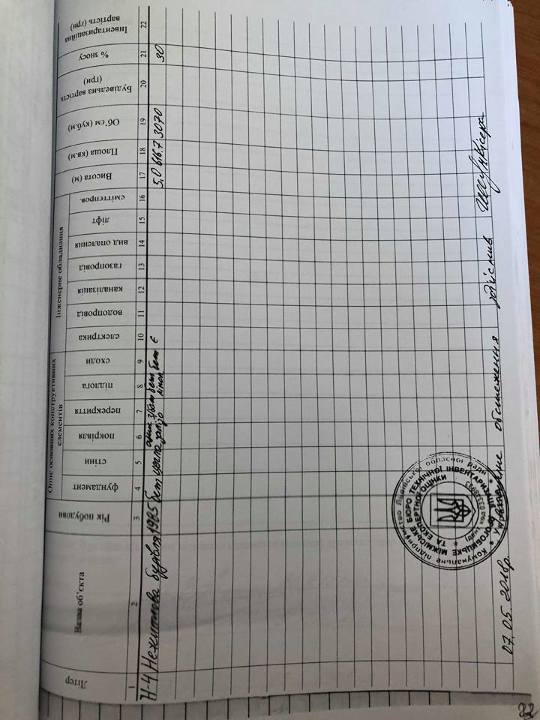 Літер
Назва об'єкта
Рік побудови
Опис основних конструктивних елементів
фундамент
стіни
покрівля
перекриття
підлога
сходи
Інженерне обладнання
електрика
водопровід
каналізація
газопровід
вид опалення
ліфт
сміттєпров.
Висота (м)
Площа (кв.м)
Об'єм (куб.м)
Будівельна вартість (грн)
% зносу
Інвентаризаційна вартість (грн)
1 2 3 4 5 6 7 8 9 10 11 12 13 14 15 16 17 18 19 20 21 22
Н-4 Нежитлова будівля 1965 бет цегла
є 5,0 616,7 3070 30
Комунальне підприємство Львівської обласної ради
БЮРО ТЕХНІЧНОЇ ІНВЕНТАРИЗАЦІЇ
ТА ЕКСПЕРТНОЇ ОЦІНКИ
Україна
07.05.2018р. обстеження здійснив
22